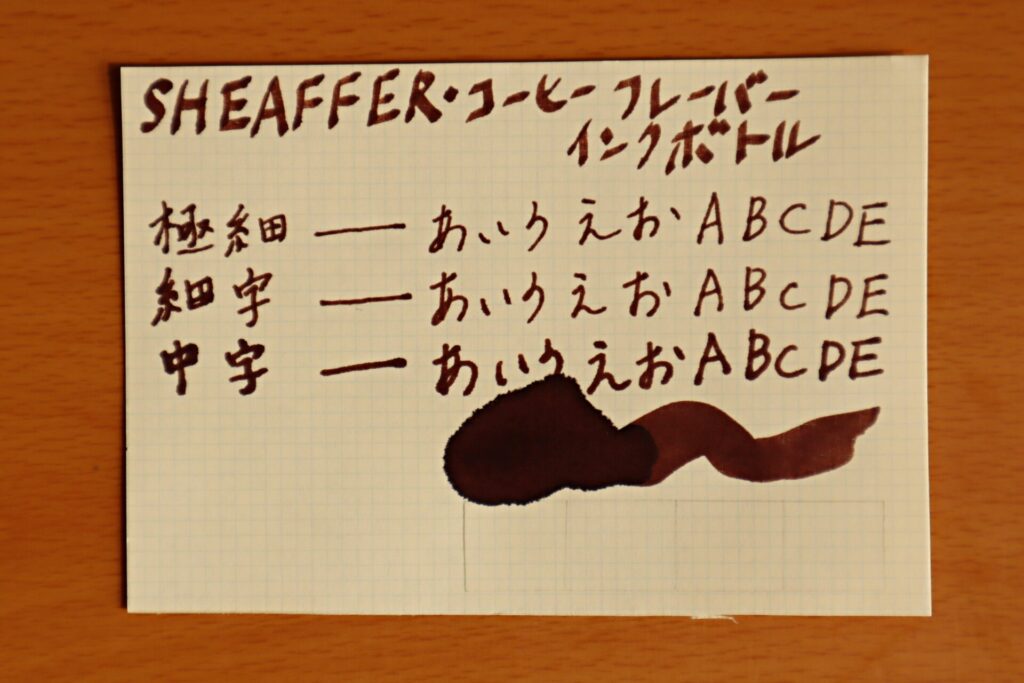 SHEAFFER・コーヒーフレーバー
インクボトル
極細 — あいうえお ABCDE
細字 — あいうえお ABCDE
中字 — あいうえお ABCDE